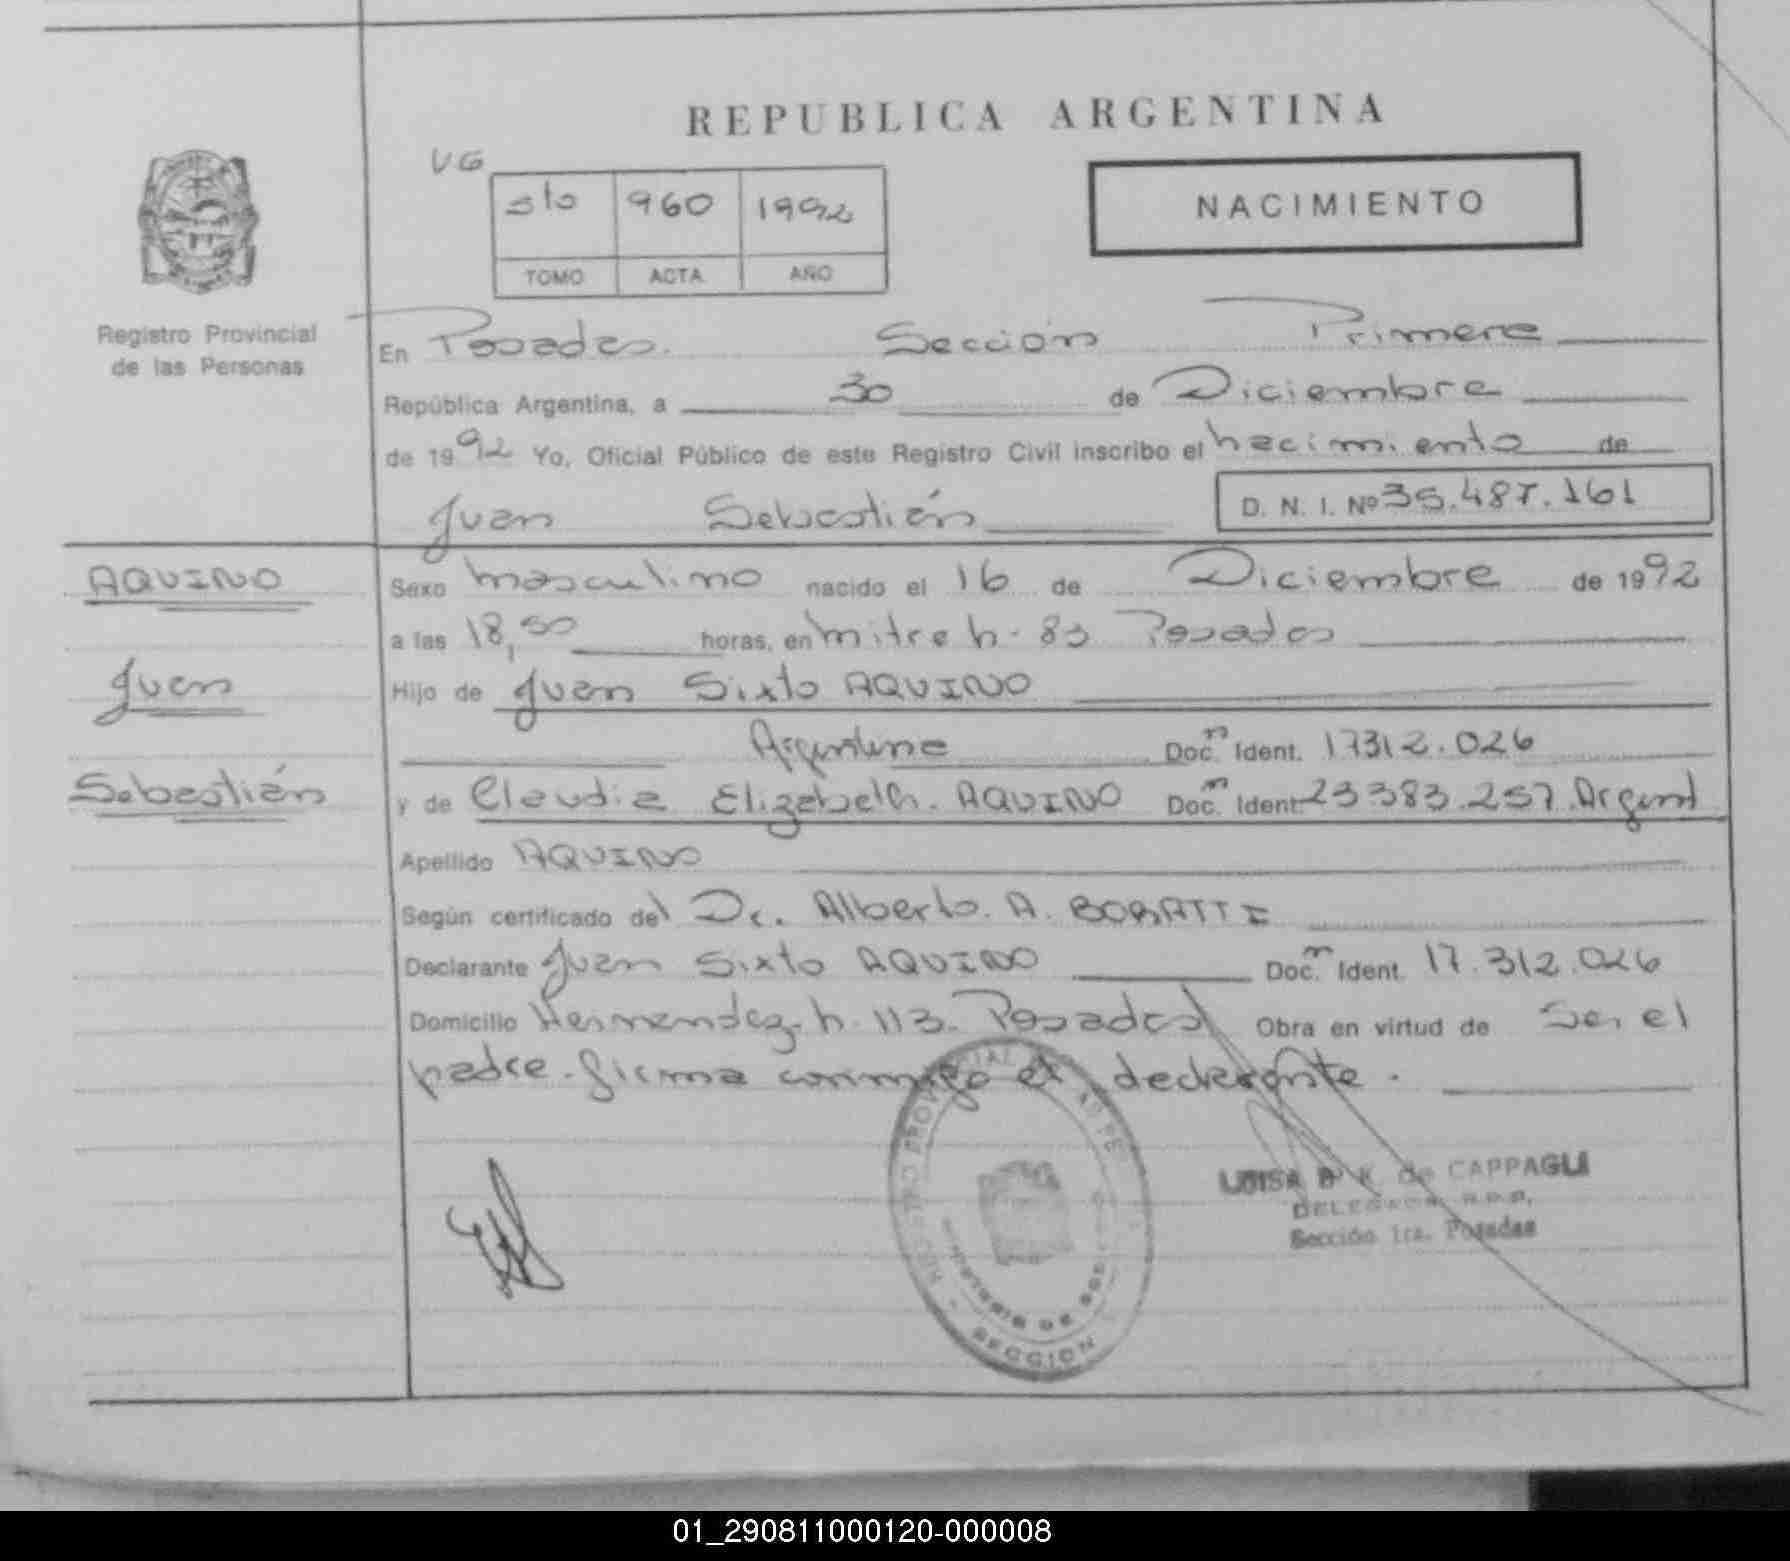 REPUBLICA ARGENTINA
VG
5to 960 1992
TOMO ACTA AÑO
NACIMIENTO
Registro Provincial
de las Personas
En Posadas. Sección Primera
República Argentina, a 30 de Diciembre
de 1992 Yo, Oficial Público de este Registro Civil inscribo el nacimiento de
Juan Sebastián D. N. I. Nº 35.487.161
AQUINO
Juan
Sebastián
Sexo masculino nacido el 16 de Diciembre de 1992
a las 18,50 horas, en mitre n. 83 Posadas
Hijo de Juan Sixto AQUINO
Argentino Doc. Ident. 17312.026
y de Claudia Elizabeth. AQUINO Doc. Ident. 23383.257. Argent
Apellido AQUINO
Según certificado del Dr. Alberto. A. BOBATTI
Declarante Juan Sixto AQUINO Doc. Ident. 17.312.026
Domicilio Hernandez. n. 113. Posadas Obra en virtud de Ser el
padre. firma conmigo el declarante.
LUISA B K. de CAPPAGLI
DELEGADA R.P.P.
Sección 1ra. Posadas
REGISTRO PROVINCIAL DE LAS PE
MINISTERIO DE GOB
SECCION
01_290811000120-000008